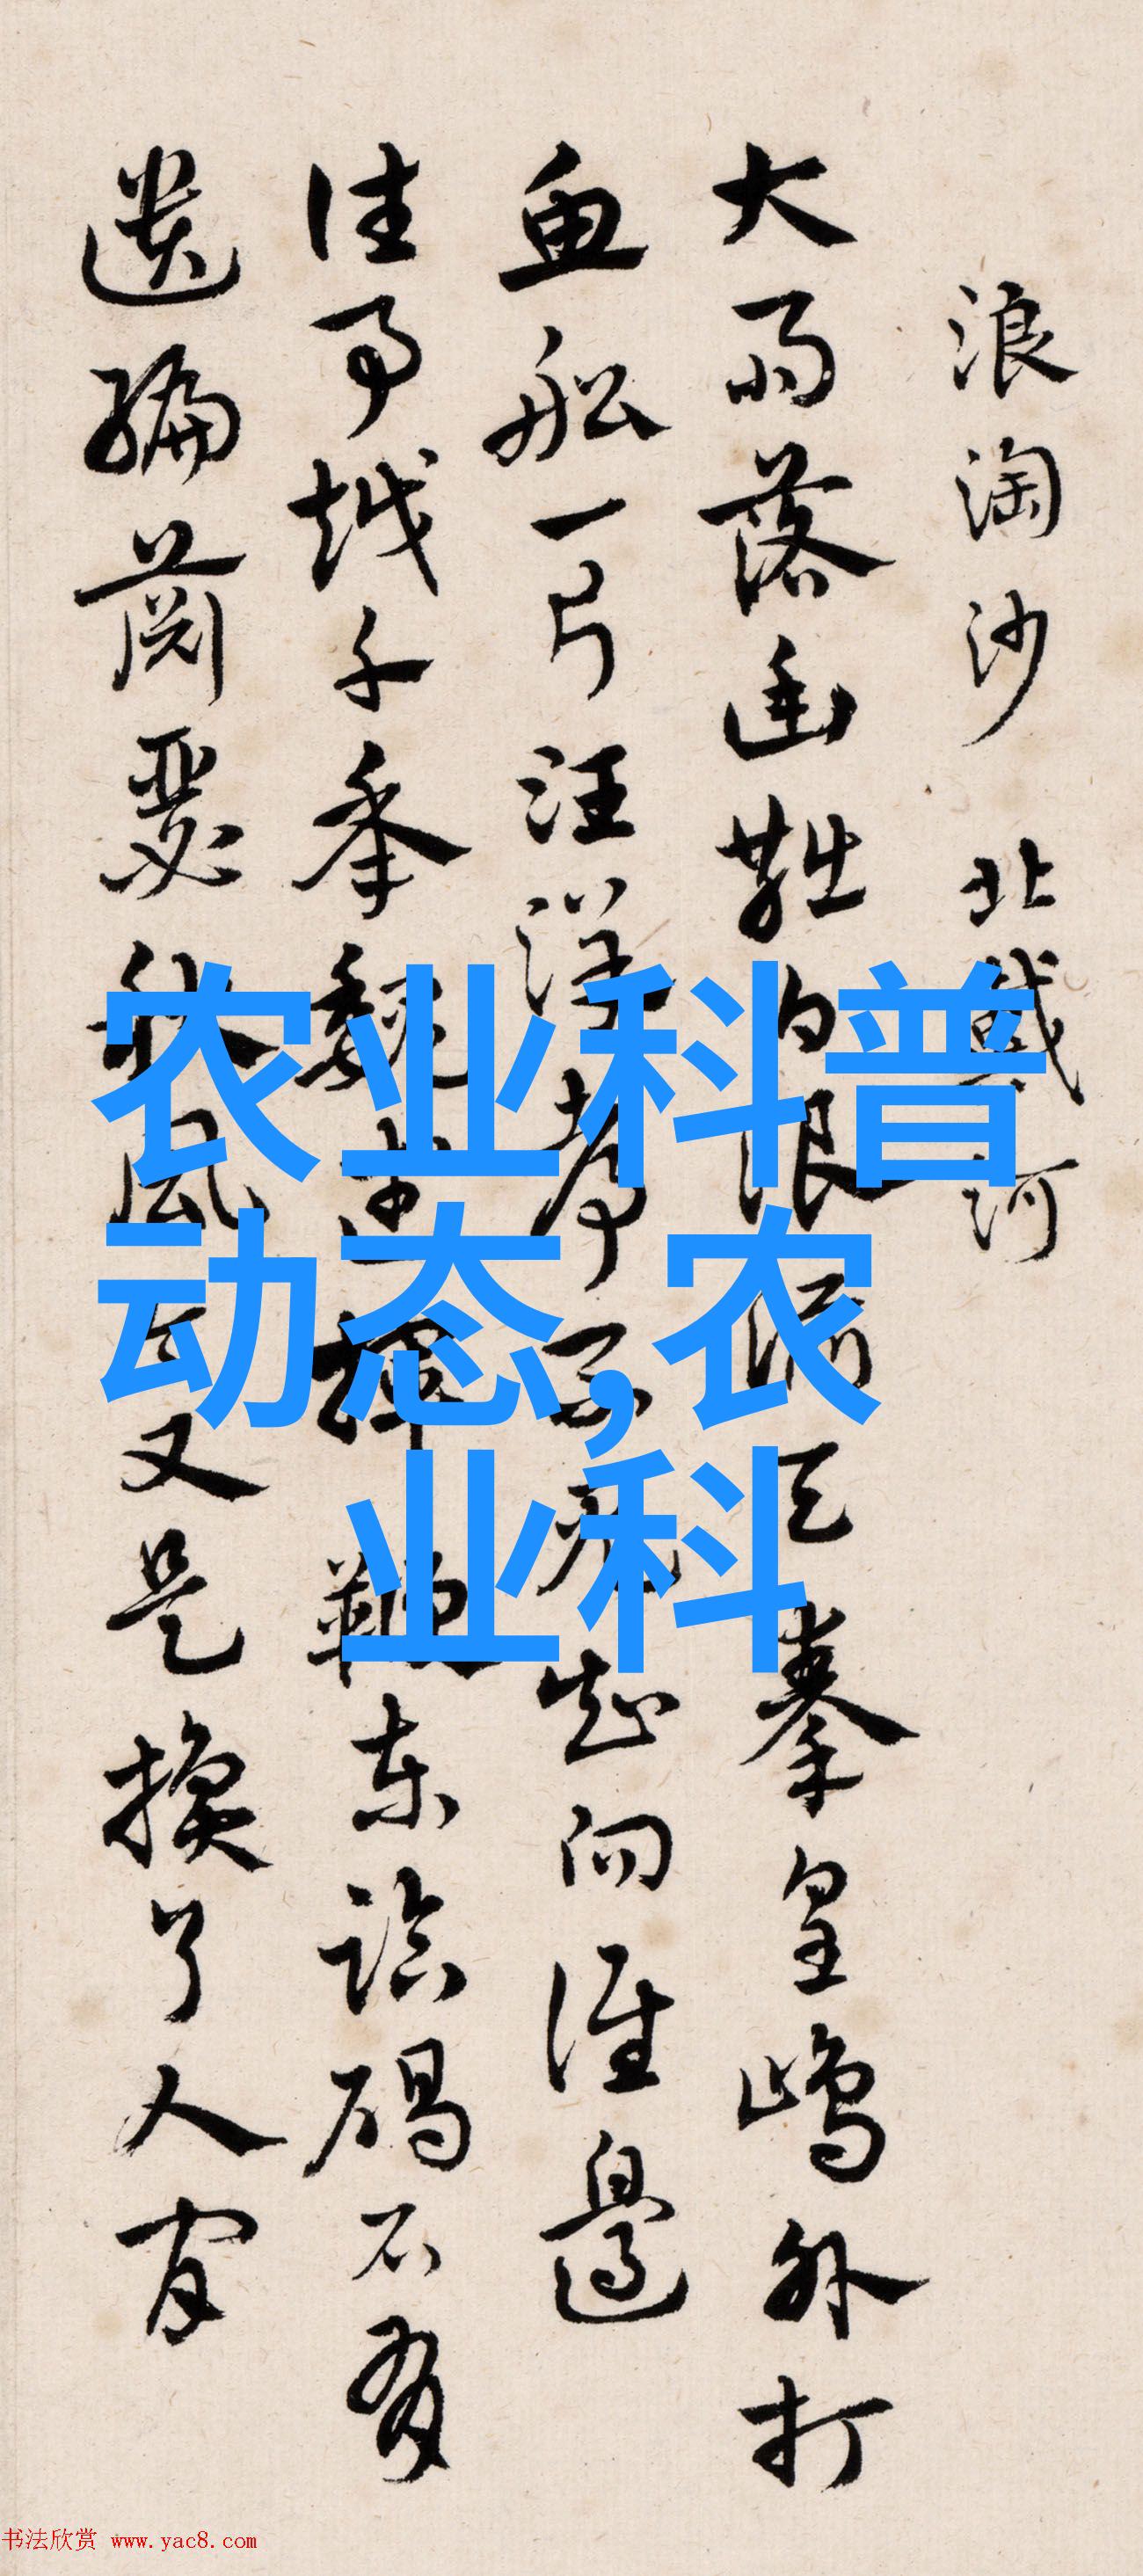 浪淘沙 北戴河
大雨落幽燕白浪滔天秦皇島外打
魚船一片汪洋都不見知向誰邊
往事越千年魏武揮鞭東臨碣石有
遺編蕭瑟秋風今又是換了人間
农业科普
动态,农
业科
书法欣赏 www.yac8.com